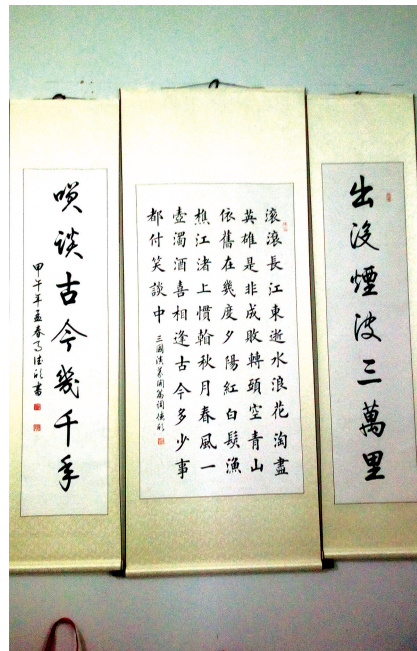 出没煙波三萬里
滾滾長江東逝水浪花淘盡
英雄是非成敗轉頭空青山
依舊在幾度夕陽紅白髮漁
樵江渚上慣翰秋月春風一
壺濁酒喜相逢古今多少事
都付笑談中
三國演義開篇詞
談古今幾千年
甲午年孟春書